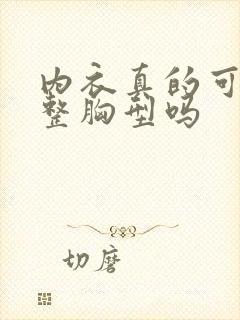 内衣真的可
整胸型吗
切磨